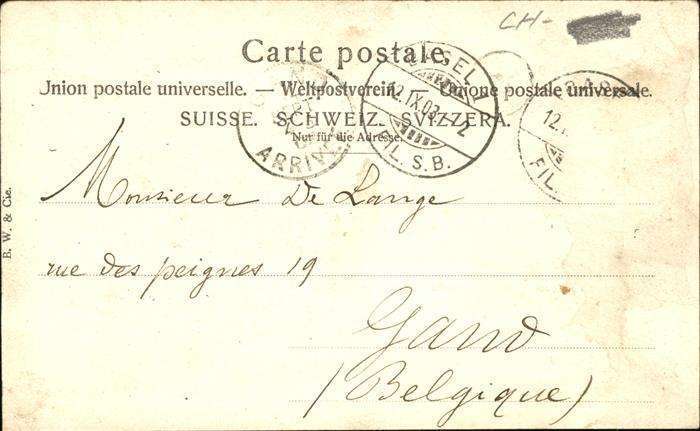 CH-
Carte postale.
Union postale universelle. — Weltpostverein. — Unione postale universale.
SUISSE. SCHWEIZ. SVIZZERA.
Nur für die Adresse.
BASEL 1
12.IX.03.-2
FIL. S.B.
ARRIVÉE
BASEL
12.I
FIL.
B. W. & Cie.
Monsieur De Lange
rue des peignes 19
Gand
(Belgique)